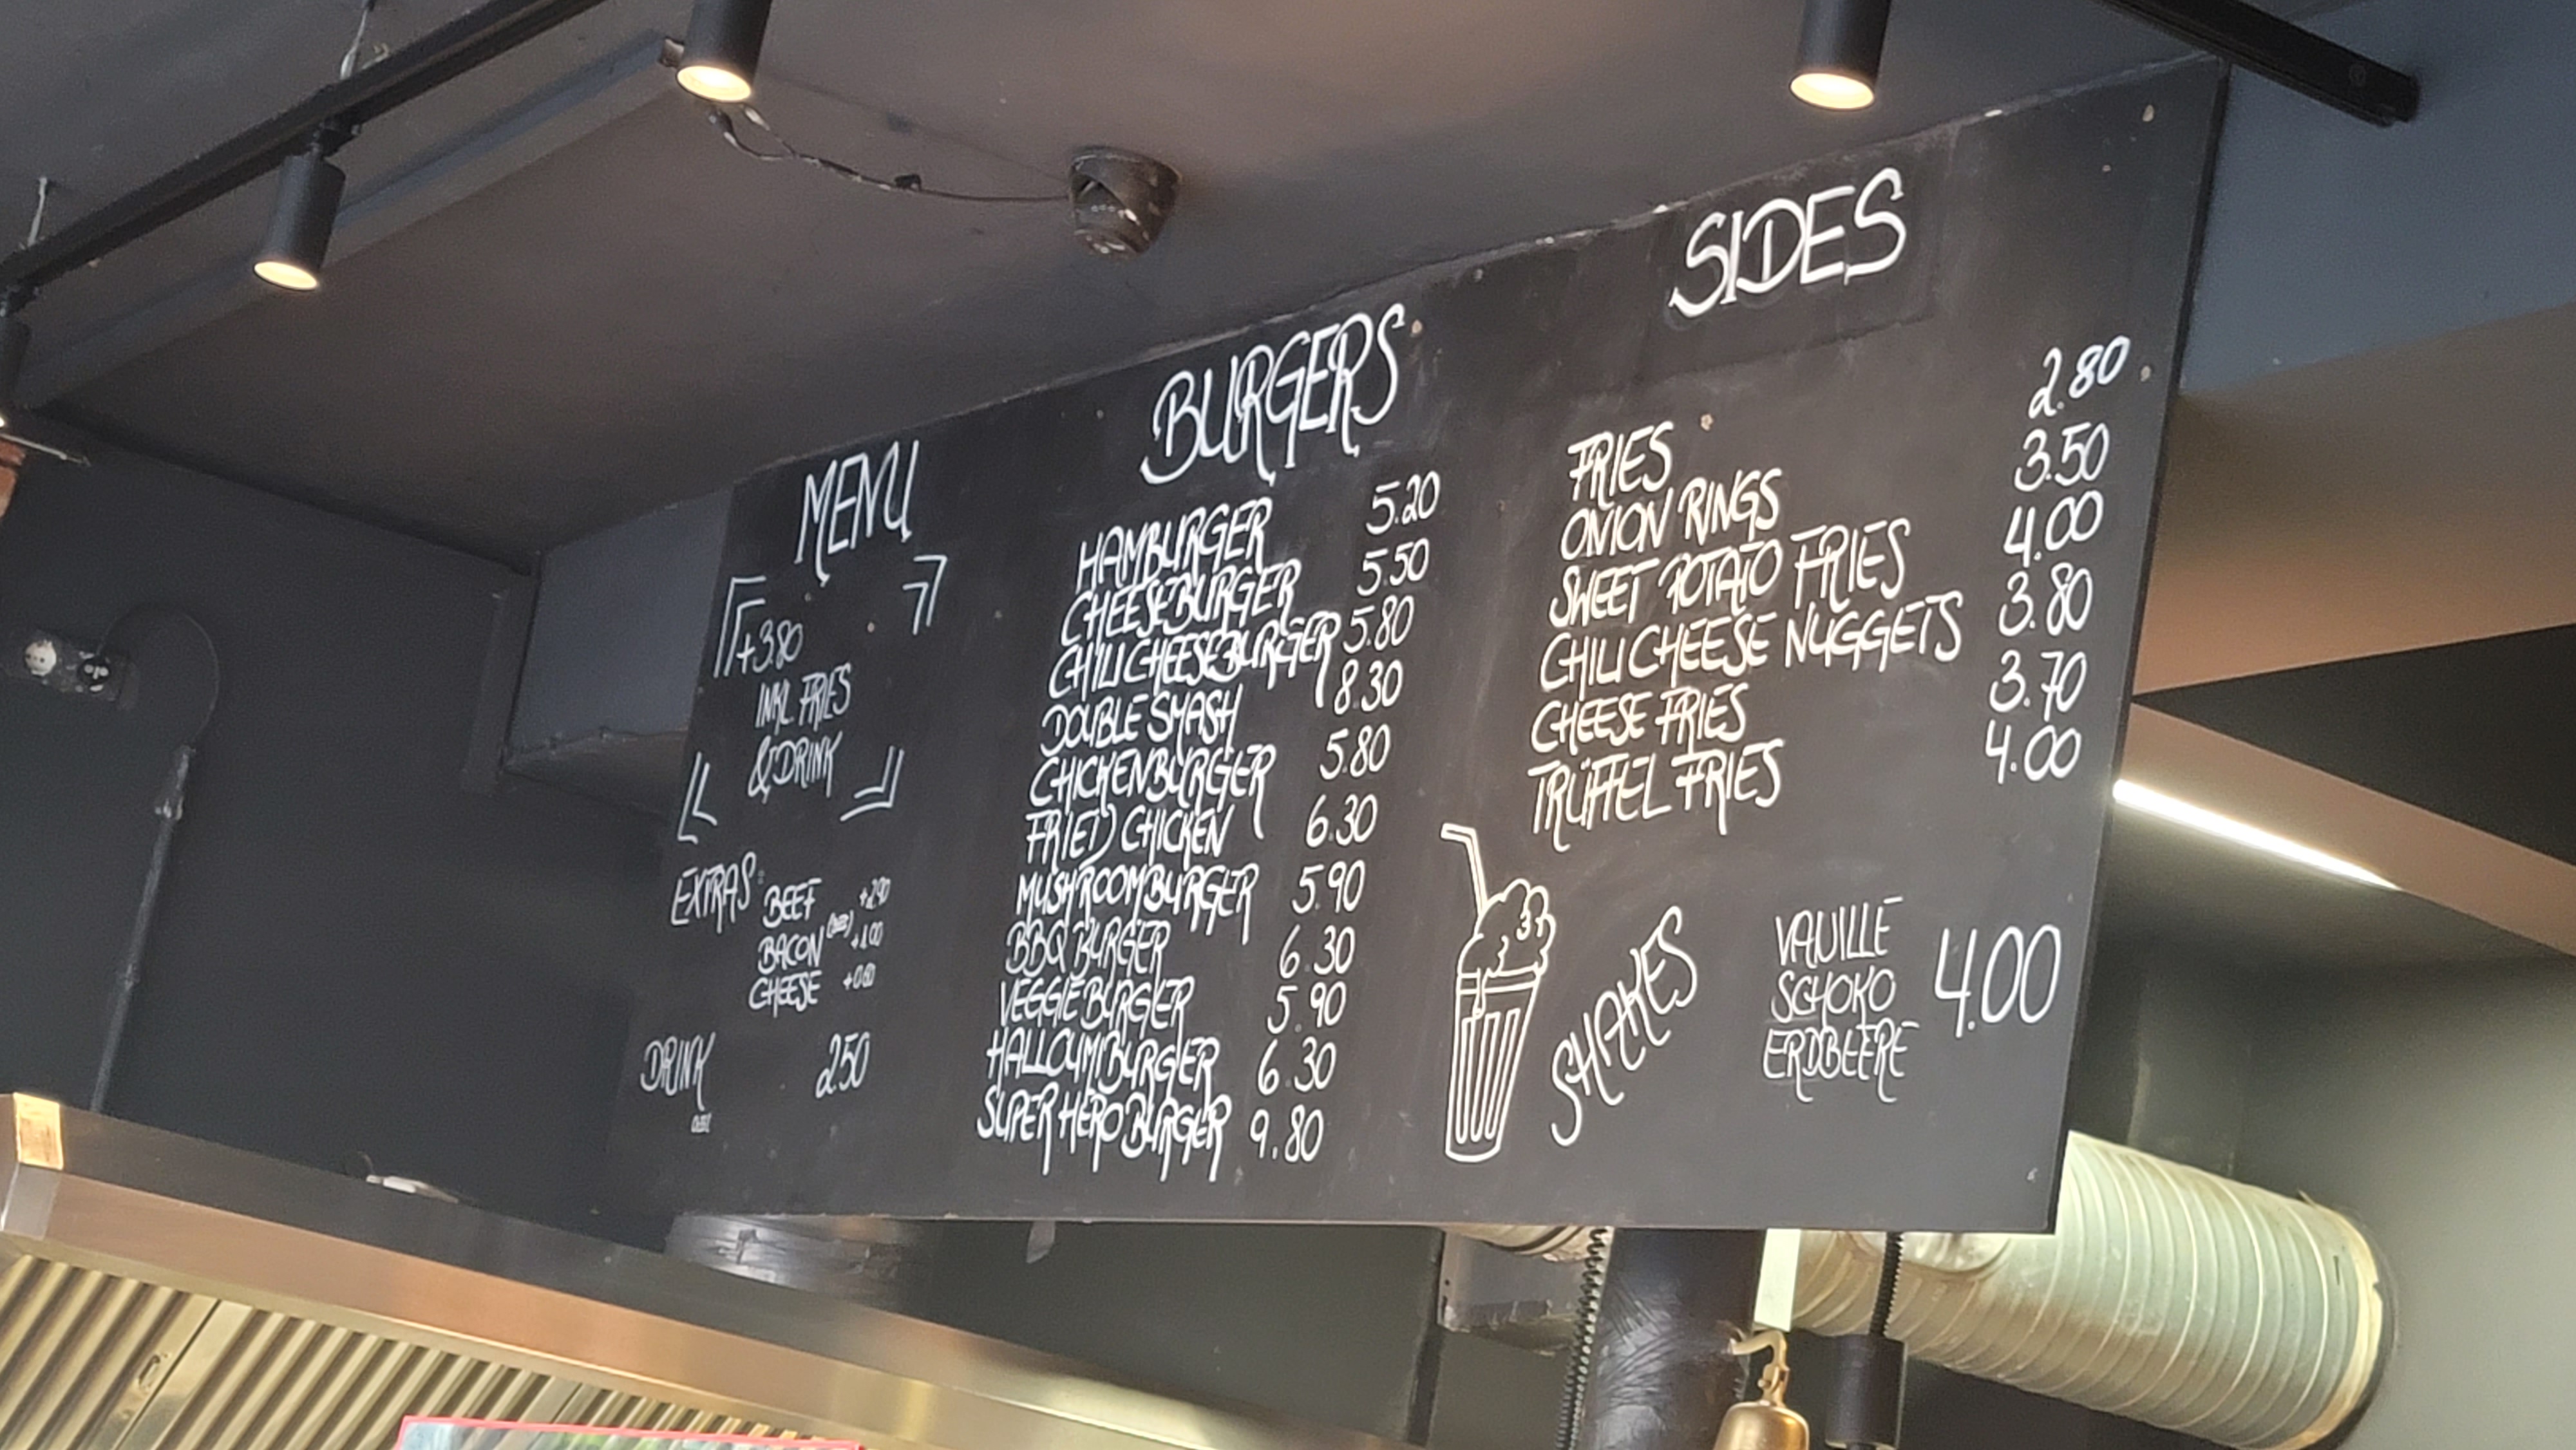 MENU
+3.80
INKL. FRIES
& DRINK
EXTRAS:
BEEF +2.90
BACON +1.00
CHEESE +0.60
DRINK 2.50
BURGERS
HAMBURGER 5.20
CHEESEBURGER 5.50
CHILICHEESEBURGER 5.80
DOUBLE SMASH 8.30
CHICKENBURGER 5.80
FRIED CHICKEN 6.30
MUSHROOMBURGER 5.90
BBQ BURGER 6.30
VEGGIEBURGER 5.90
HALLOUMIBURGER 6.30
SUPER HERO BURGER 9.80
SIDES
FRIES 2.80
ONION RINGS 3.50
SWEET POTATO FRIES 4.00
CHILI CHEESE NUGGETS 3.80
CHEESE FRIES 3.70
TRÜFFEL FRIES 4.00
SHAKES
VANILLE
SCHOKO 4.00
ERDBEERE